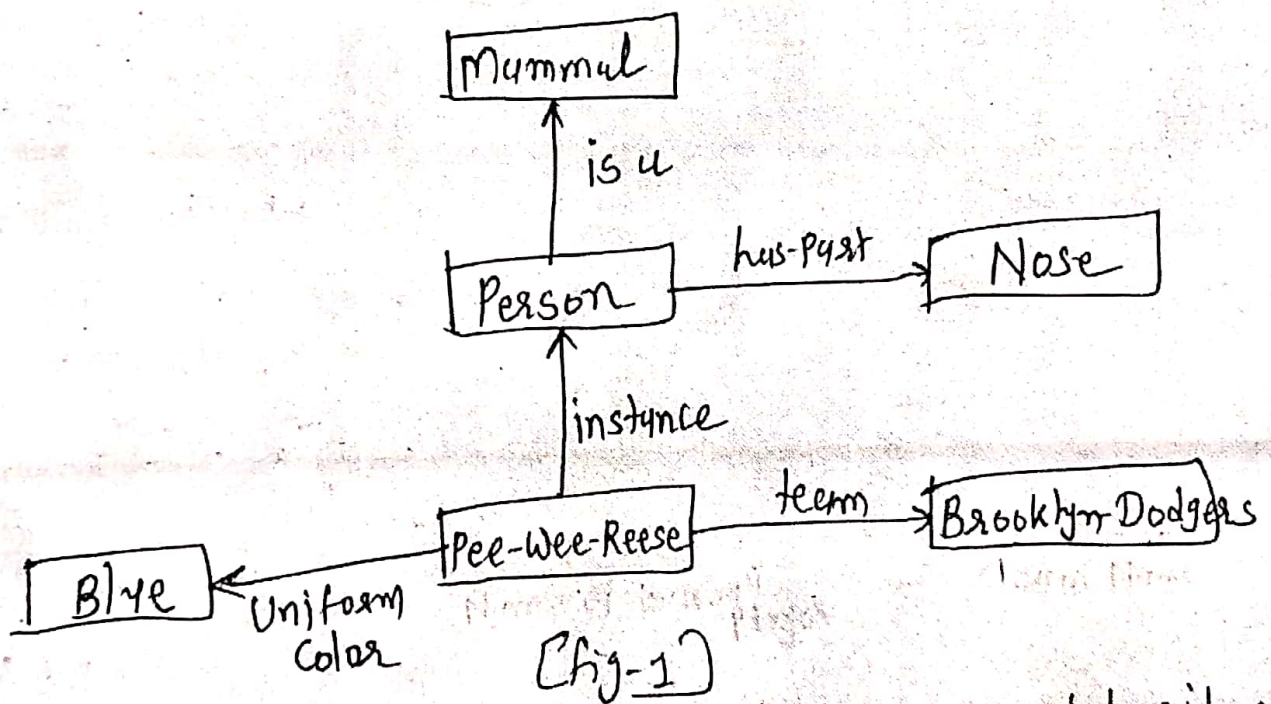 Mammal
is a
Person
has-part
Nose
instance
Pee-Wee-Reese
team
Brooklyn-Dodgers
Blue
Uniform
Color
[fig-1]